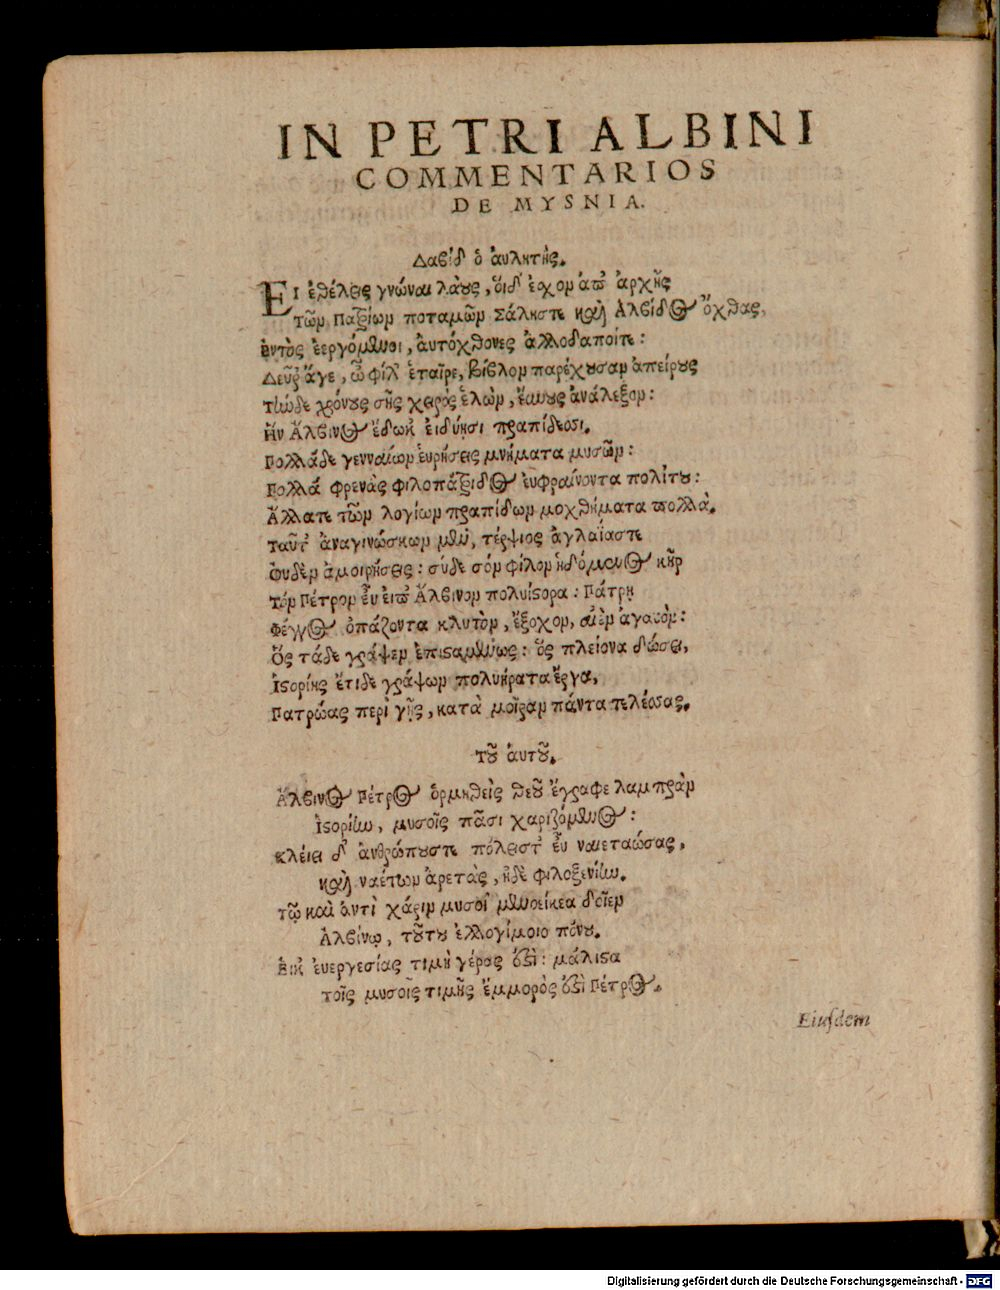 IN PETRI ALBINI
COMMENTARIOS
DE MYSNIA.
Δαβὶδ ὁ ἀυλητὴς.
Εἰ ἐθέλεις γνώναι λαὸυς, ὅιδ' ἔσχον ἀπ' ἀρχῆς
τῶν Πατρίων ποταμῶν Σάλης τε καὶ Ἀλβίδος ὄχθας,
ἐντὸς ἐεργόμενοι, ἀυτόχθονες ἀλλοδαποίτε:
Δεῦρ' ἄγε, ὦ φίλ' ἑταῖρε, βίβλον παρέχουσαν ἀπείρους
τήνδε χρόνους σῆς χειρὸς ἑλὼν, ἔπους ἀνάλεξον:
Ἣν Ἄλβινος ἔδωκ' εἰδύησι πραπίδεσι.
Πολλάδε γενναίων ἑυρήσεις μνήματα μυσῶν:
Πολλά φρενὰς φιλοπάτριδος ἐυφραίνοντα πολίτου:
Ἄλλατε τῶν λογίων πραπίδων μοχθήματα πολλὰ.
Ταῦτ' ἀναγινώσκων μὲν, τέρψιος ἀγλαΐας τε
ὀυδὲν ἀμοιρήσεις: σύδε σὸν φίλον ἡδόμενος κῆρ
τὸν Πέτρον εὖ εἰπ' Ἄλβινον πολυίστορα: Πάτρῃ
Φέγγος ὀπάζοντα κλυτὸν, ἔξοχον, αἰὲν ἀγαυὸν:
Ὃς τάδε γράψεν ἐπισαμένως: ὃς πλείονα δώσει,
Ἱστορίης ἔτιδε γράψων πολυήρατα ἔργα,
Πατρώας περὶ γῆς, κατὰ μοῖραν πάντα τελέσσας.
Τοῦ ἀυτοῦ.
Ἄλβινος Πέτρος ὁρμηθεὶς θεοῦ ἔγραφε λαμπρὰν
Ἱστορίην, μυσοῖς πᾶσι χαριζόμενος:
κλέιει δ' ἀνθρώπους τε πόλεις τ' εὖ ναιεταώσας,
καὶ ναέτων ἀρετὰς, ἠδὲ φιλοξενίην.
τῷ καὶ ἀντὶ χάριν μυσοὶ μενοεικέα δοῖεν
Ἀλβίνῳ, τούτου ἐλλογίμοιο πόνου.
Εἰκ' ἐυεργεσίας τιμὴ γέρας ἐστὶ: μάλιστα
τοῖς μυσοῖς τιμῆς ἔμμορὸς ἐστὶ Πέτρος.
Eiusdem
Digitalisierung gefördert durch die Deutsche Forschungsgemeinschaft - DFG